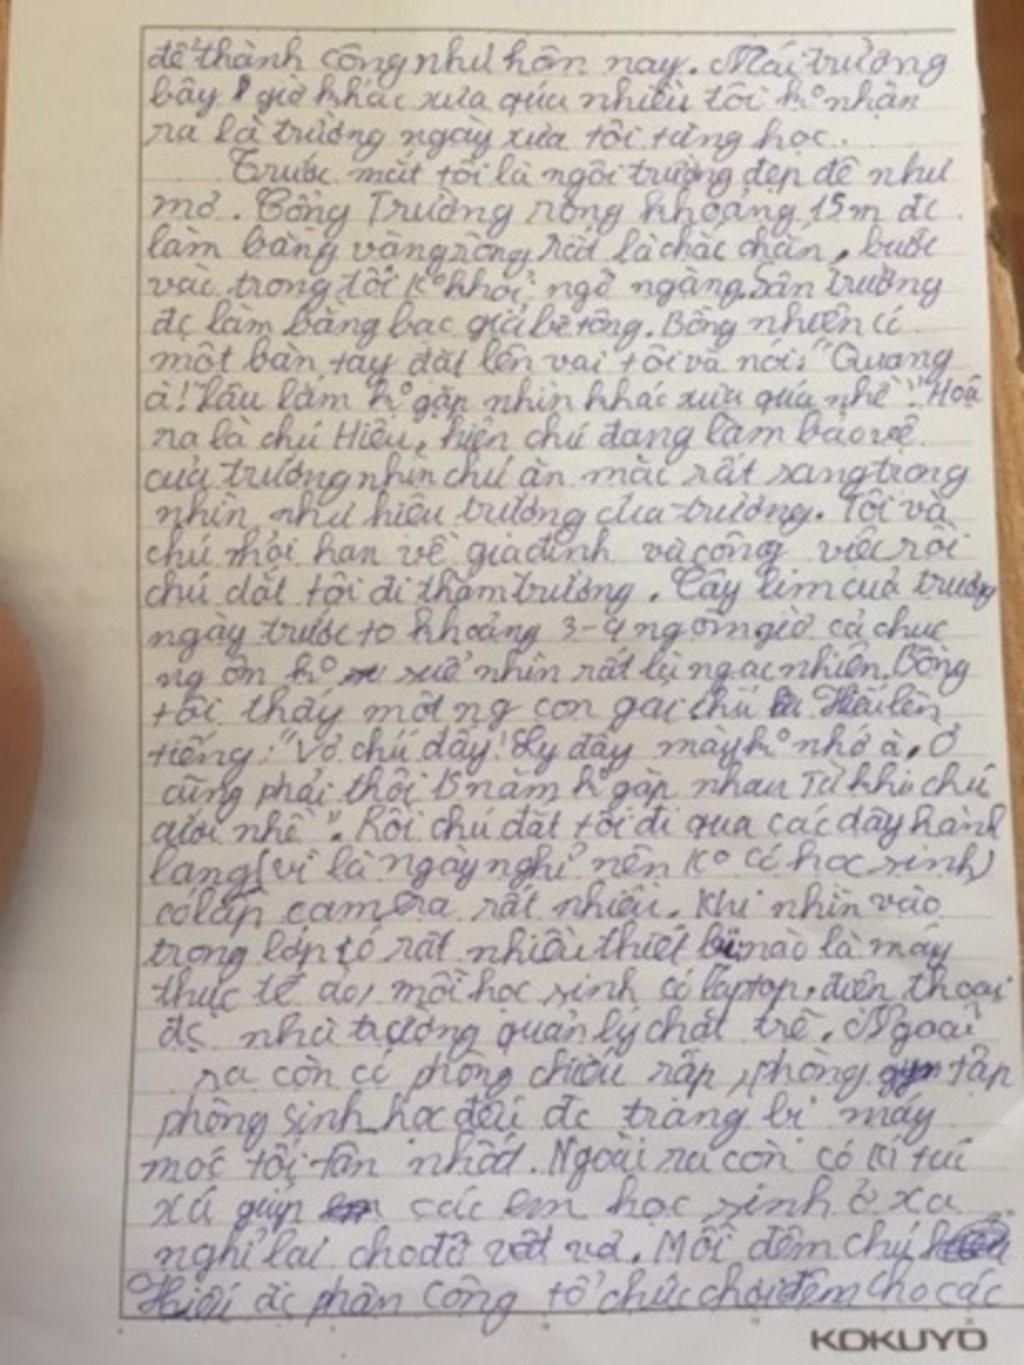 để thành công như hôm nay. Mái trường
bây giờ khác xưa quá nhiều tôi k° nhận
ra là trường ngày xưa tôi từng học.
Trước mắt tôi là ngôi trường đẹp đẽ như
mơ. Cổng Trường rộng khoảng 15m đc
làm bằng vàng ròng rất là chắc chắn, bước
vào trong tôi k° khỏi ngỡ ngàng. Sân trường
đc làm bằng bạc giả bê tông. Bỗng nhiên có
một bàn tay đặt lên vai tôi và nói: "Quang
à! Lâu lắm k° gặp nhìn khác xưa quá nhể". Hoá
ra là chú Hiếu, hiện chú đang làm bảo vệ
của trường nhìn chú ăn mặc rất sang trọng
nhìn như hiệu trưởng của trường. Tôi và
chú hỏi han về gia đình và công việc rồi
chú dắt tôi đi thăm trường. Cây lim của trường
ngày trước to khoảng 3-4 ng ôm giờ cả chục
ng ôm k° xuể nhìn rất ngạc nhiên. Bỗng
tôi thấy một ng con gái chú Hiếu lên
tiếng: "Vợ chú đấy! Ly đấy mày k° nhớ à. Ơ
cũng phải thôi 15 năm k° gặp nhau Từ khi chú
cưới nhể". Rồi chú dắt tôi đi qua các dãy hành
lang (vì là ngày nghỉ nên k° có học sinh)
có lắp camera rất nhiều. Khi nhìn vào
trong lớp có rất nhiều thiết bị nào là máy
thực tế ảo, mỗi học sinh có laptop, điện thoại
đc nhà trường quản lý chặt trẽ. Ngoài
ra còn có phòng chiếu rạp, phòng tập
phòng sinh học đều đc trang bị máy
móc tối tân nhất. Ngoài ra còn có kí túc
xá giúp các em học sinh ở xa
nghỉ lại cho đỡ vất vả. Mỗi đêm chú
Hiếu đc phân công tổ chức chơi đêm cho các
KOKUYO